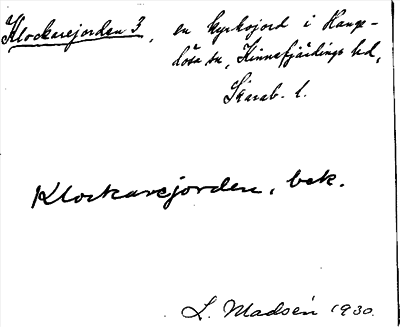 Klockarejorden 3, en kyrkojord i Hange-
lösa sn, Kinnefjärdings hd,
Skarab. l.
Klockarejorden, bek.
L. Madsén 1930.